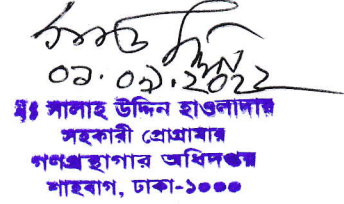 ০১.০৯.২০২২
মোঃ সালাহ উদ্দিন হাওলাদার
সহকারী প্রোগ্রামার
গণগ্রন্থাগার অধিদপ্তর
শাহবাগ, ঢাকা-১০০০